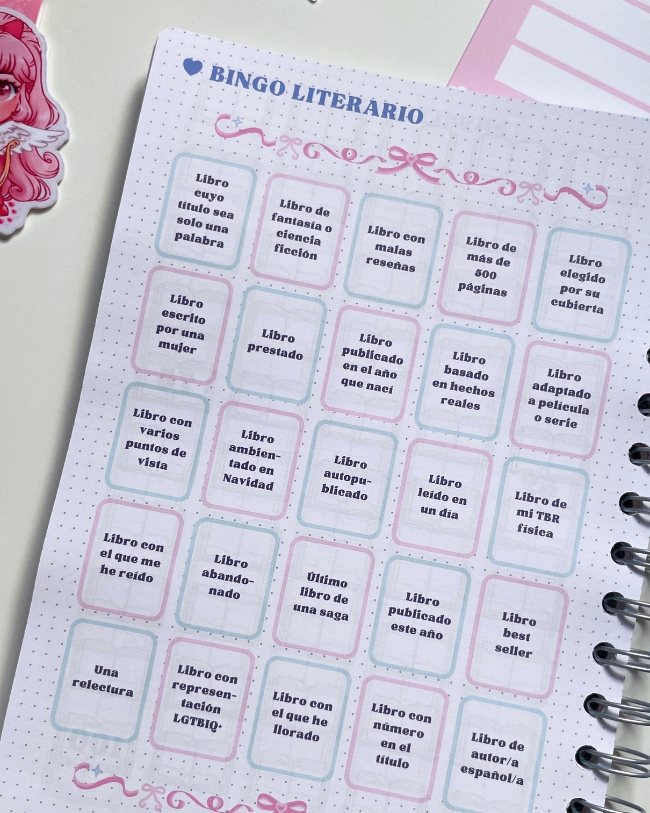 BINGO LITERARIO
Libro
cuyo
título sea
solo una
palabra
Libro de
fantasía o
ciencia
ficción
Libro con
malas
reseñas
Libro de
más de
500
páginas
Libro
elegido
por su
cubierta
Libro
escrito
por una
mujer
Libro
prestado
Libro
publicado
en el año
que nací
Libro
basado
en hechos
reales
Libro
adaptado
a película
o serie
Libro con
varios
puntos de
vista
Libro
ambien-
tado en
Navidad
Libro
autopu-
blicado
Libro
leído en
un día
Libro de
mi TBR
física
Libro con
el que me
he reído
Libro
abando-
nado
Último
libro de
una saga
Libro
publicado
este año
Libro
best
seller
Una
relectura
Libro con
represen-
tación
LGTBIQ+
Libro con
el que he
llorado
Libro con
número
en el
título
Libro de
autor/a
español/a